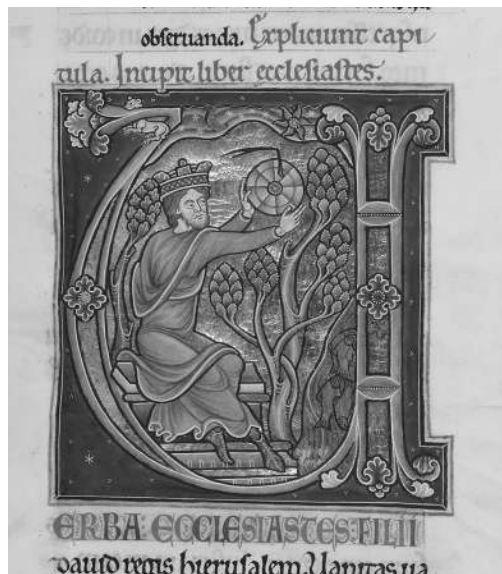 obseruanda. Expliciunt capi
tula. Incipit liber ecclesiastes.
U
ERBA ECCLESIASTES FILII
dauid regis hierusalem. Uanitas ua